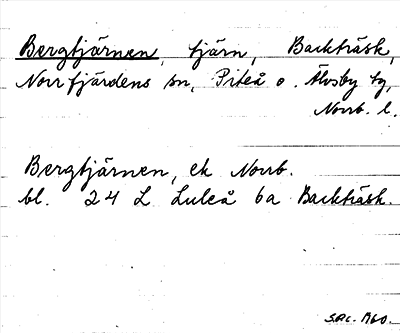 Bergtjärnen, tjärn, Backträsk,
Norrfjärdens sn, Piteå o. Älvsby tg,
Norrb. l.
Bergtjärnen, ek Norrb.
bl. 24 L Luleå 6a Backträsk.